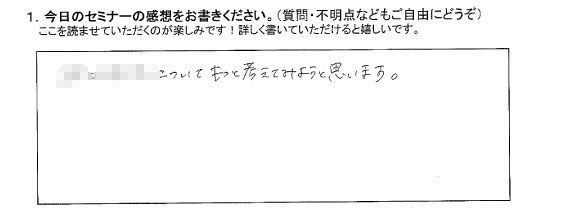 1. 今日のセミナーの感想をお書きください。(質問・不明点などもご自由にどうぞ)
ここを読ませていただくのが楽しみです!詳しく書いていただけると嬉しいです。
について もっと考えてみようと思います。